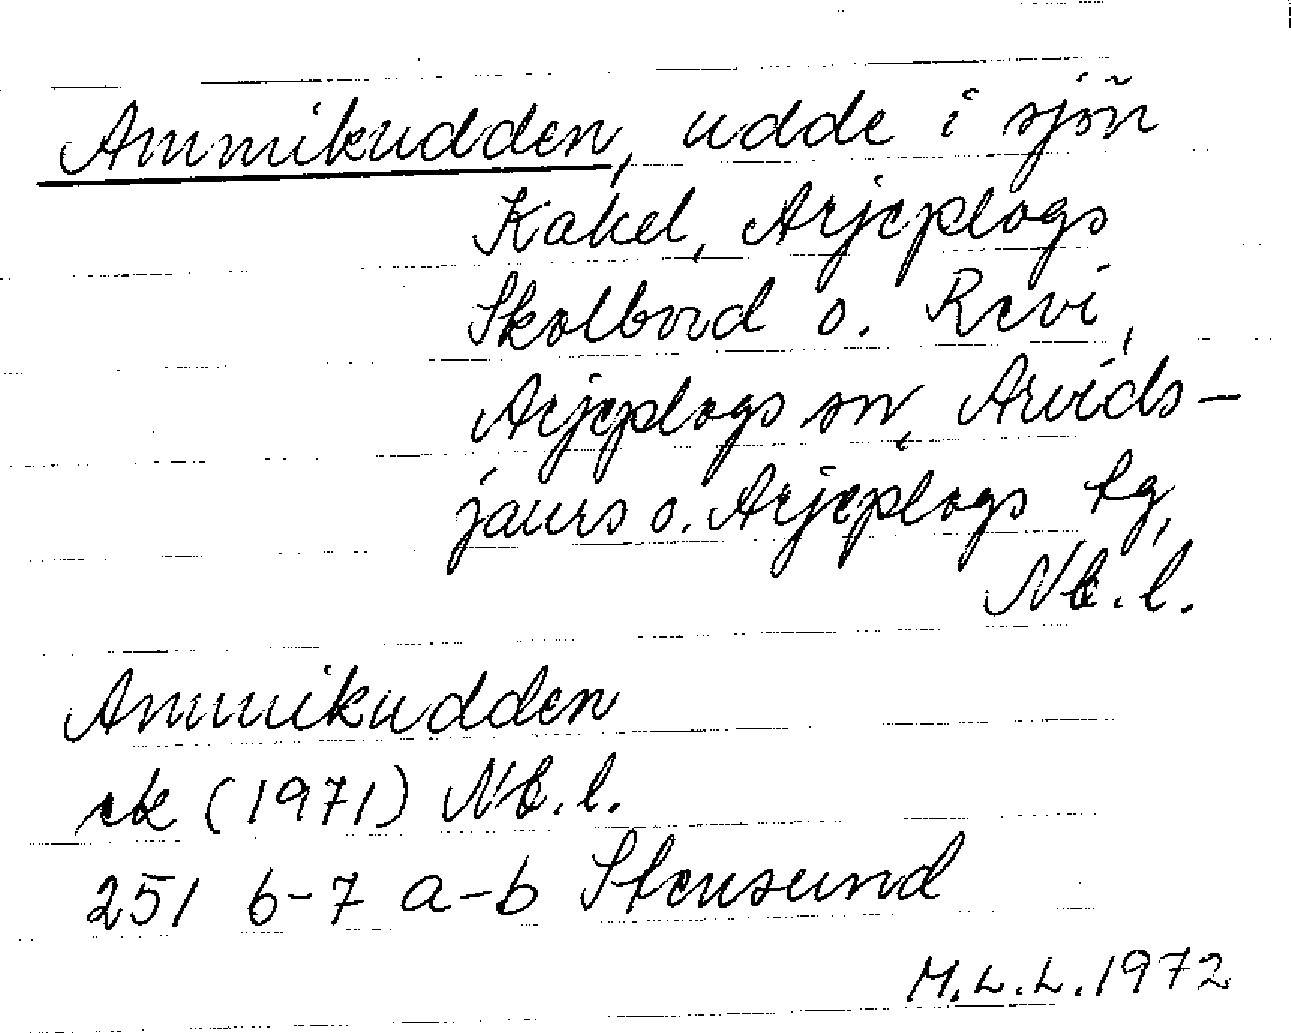 Ammikudden, udde i sjön
Kakel, Arjeplogs
Skolbord o. Revi,
Arjeplogs sn, Arvids-
jaurs o. Arjeplogs tg,
Nb.l.
Ammikudden
ek (1971) Nb.l.
251 6-7 a-b Stensund
M.L.L.1972